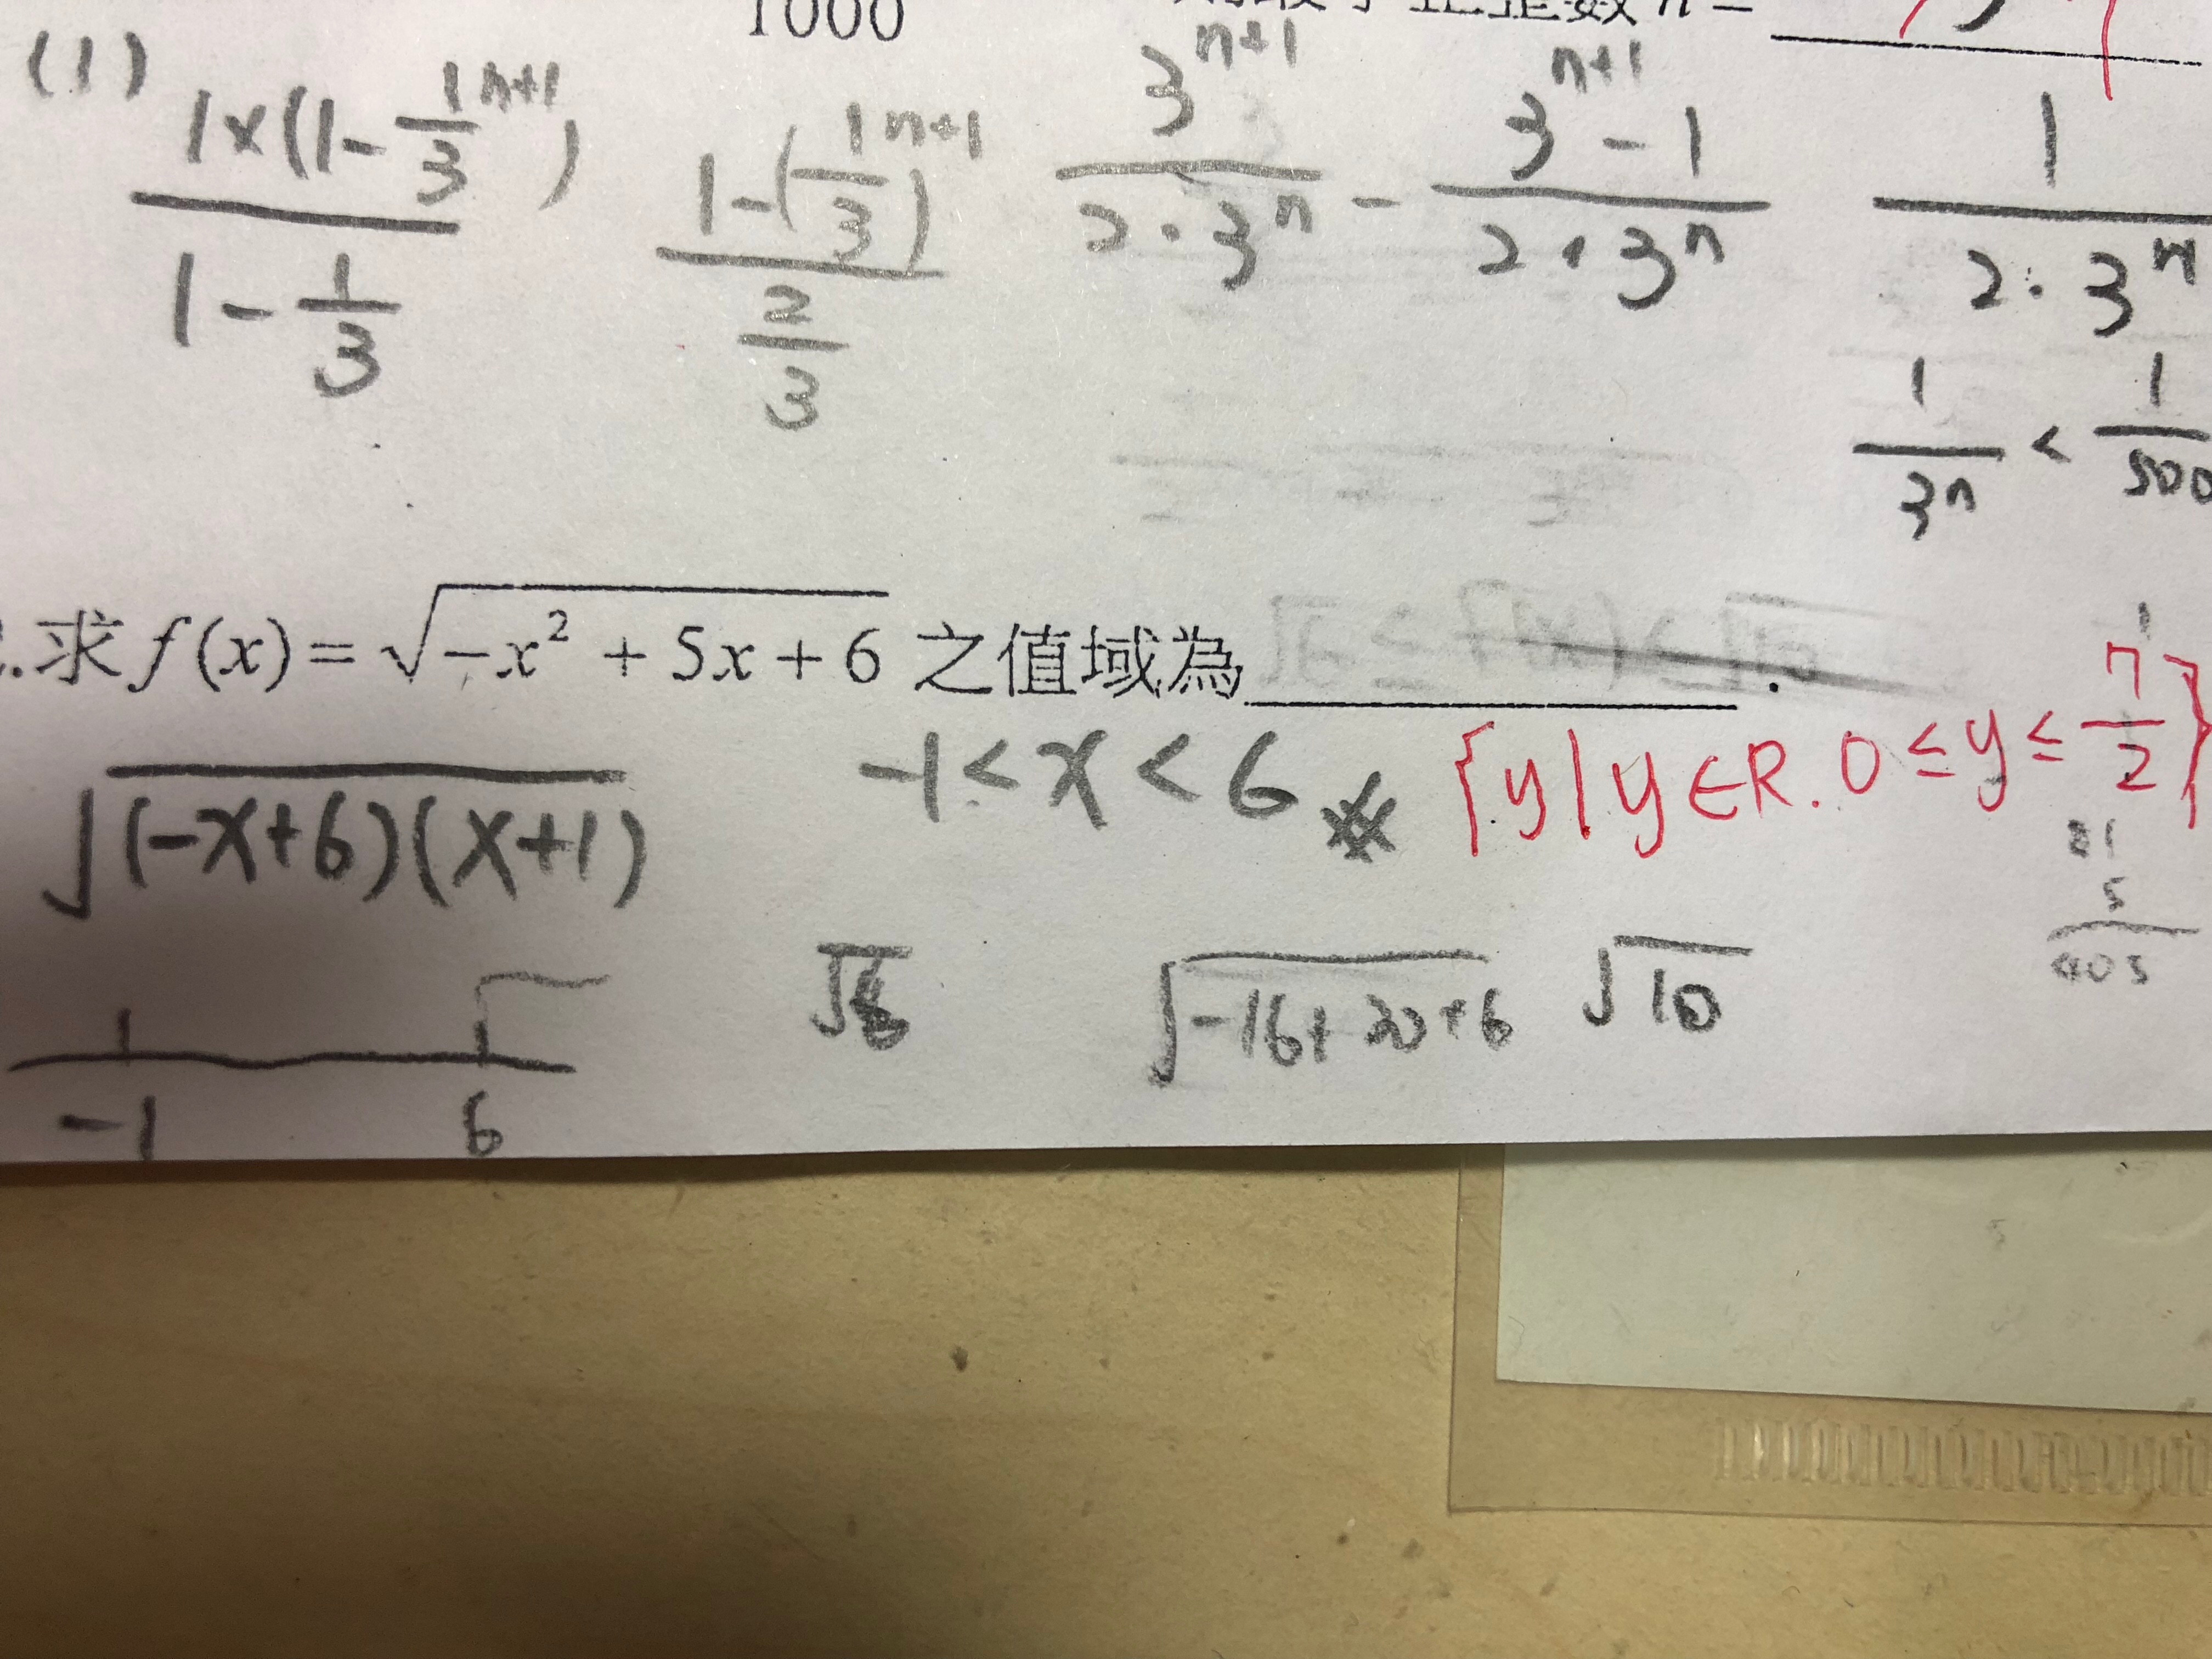 1000 整數 n =
(1) \frac{1×(1-\frac{1}{3}^{n+1})}{1-\frac{1}{3}} \frac{1-(\frac{1}{3})^{n+1}}{\frac{2}{3}} \frac{3^{n+1}}{2·3^n} - \frac{3^{n+1}-1}{2·3^n} \frac{1}{2·3^n}
\frac{1}{3^n} < \frac{1}{500}
.求 f(x) = \sqrt{-x^2+5x+6} 之值域為________.
\sqrt{(-x+6)(x+1)} -1<x<6 {y|y∈R. 0≤y≤\frac{7}{2}}
81
5
405
\sqrt{-16+20+6} \sqrt{10}
-1 6